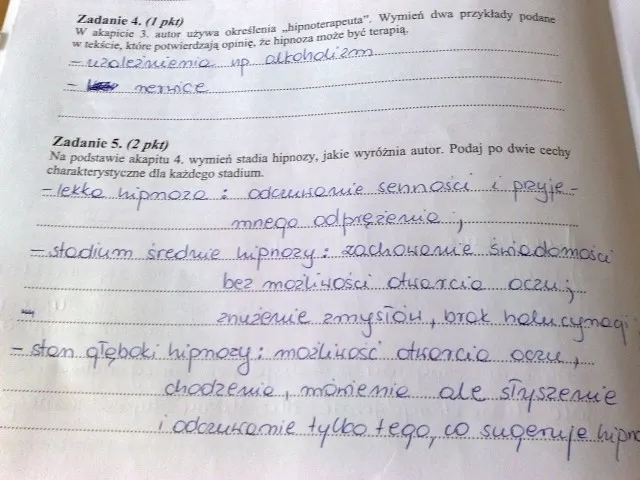 Zadanie 4. (1 pkt)
W akapicie 3. autor używa określenia „hipnoterapeuta”. Wymień dwa przykłady podane
w tekście, które potwierdzają opinię, że hipnoza może być terapią.
- uzależnienia np. alkoholizm
- nerwice
Zadanie 5. (2 pkt)
Na podstawie akapitu 4. wymień stadia hipnozy, jakie wyróżnia autor. Podaj po dwie cechy
charakterystyczne dla każdego stadium.
- lekka hipnoza : odczuwanie senności i przyje-
mnego odprężenia ;
- stadium średnie hipnozy : zachowanie świadomości
bez możliwości otwarcia oczu ;
znużenie zmysłów, brak halucynacji
- stan głęboki hipnozy : możliwość otwarcia oczu ,
chodzenia , mówienia ale słyszenie
i odczuwanie tylko tego, co sugeruje hipno